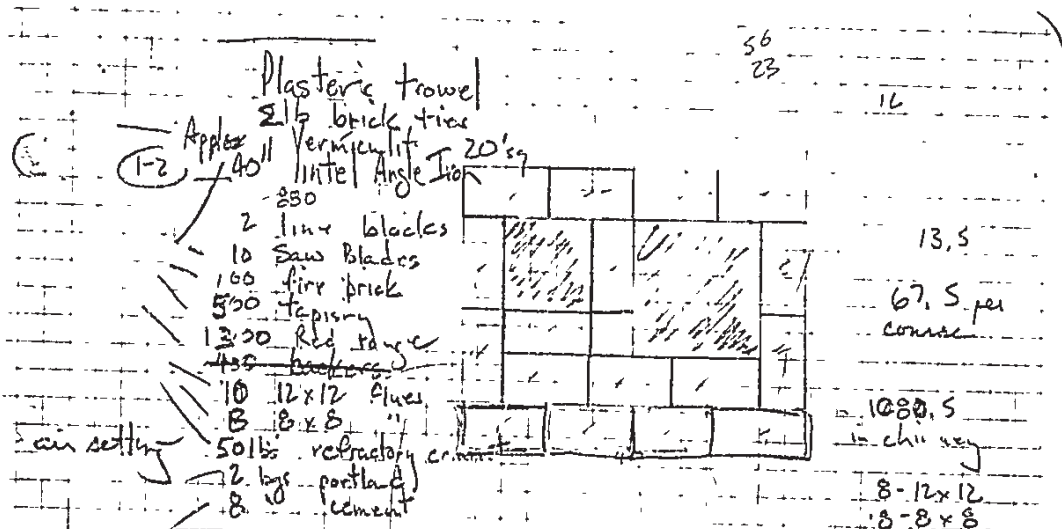 56
23
Plaster's trowel
2 lb brick ties
Vermiculit
1-2 40" lintel Angle Iron 20' sq
2 line blocks
10 Saw Blades
100 fire brick
500
1300 Red range
10 12x12 flues
8 8x8 "
air setting 50 lbs refractory
2 bgs portland
8 cement
13,5
67.5 per
course
1080,5
in chimney
8-12x12
8-8x8